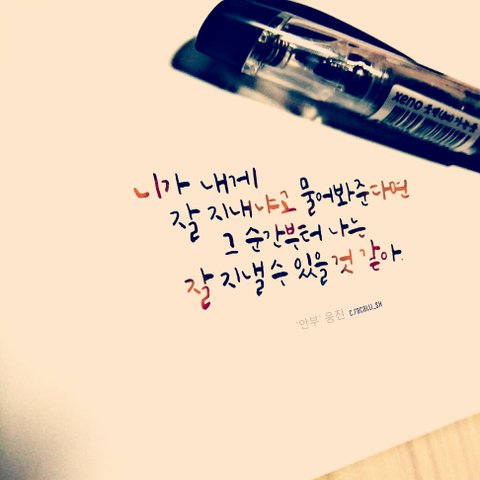 xeno 붓펜
니가 내게
잘 지내냐고 물어봐준다면
그 순간부터 나는
잘 지낼 수 있을 것 같아.
'안부' 웅진